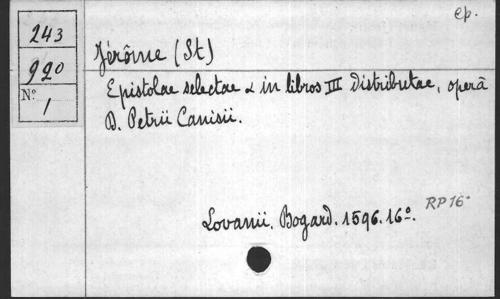 ep.
243
990
N°.
1
Jérôme (St)
Epistolae selectae & in libros III distributae, operâ
D. Petrii Canisii.
Lovanii. Bogard. 1596. 16°.
RP 16°